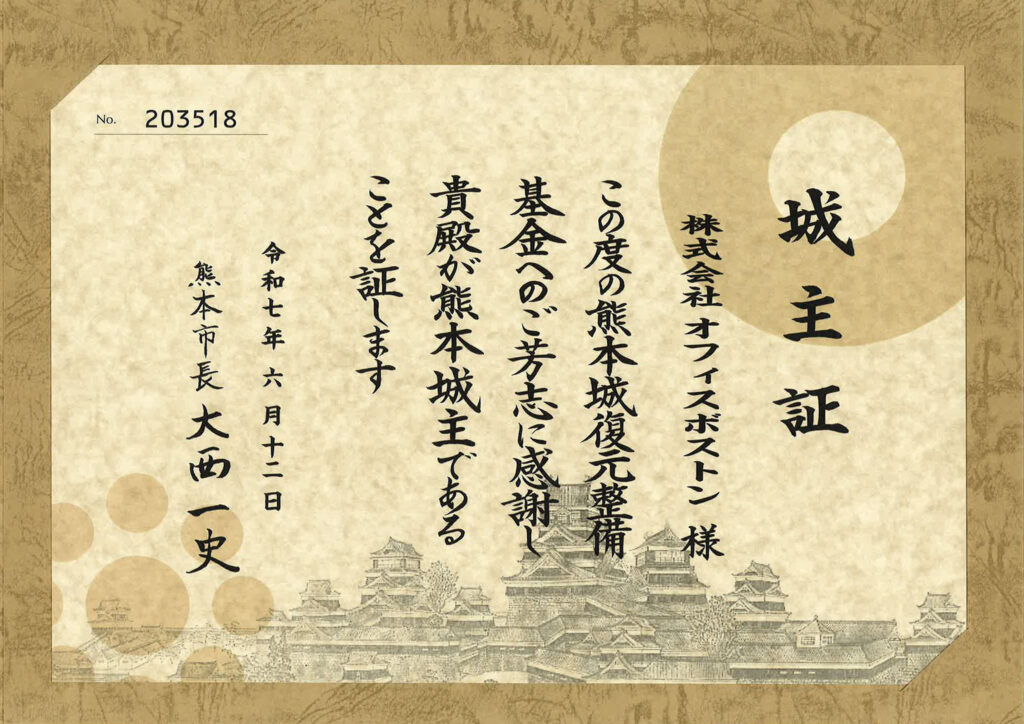 No. 203518
城主証
株式会社 オフィスボストン 様
この度の熊本城復元整備
基金へのご芳志に感謝し
貴殿が熊本城主である
ことを証します
令和七年 六月十二日
熊本市長 大西一史